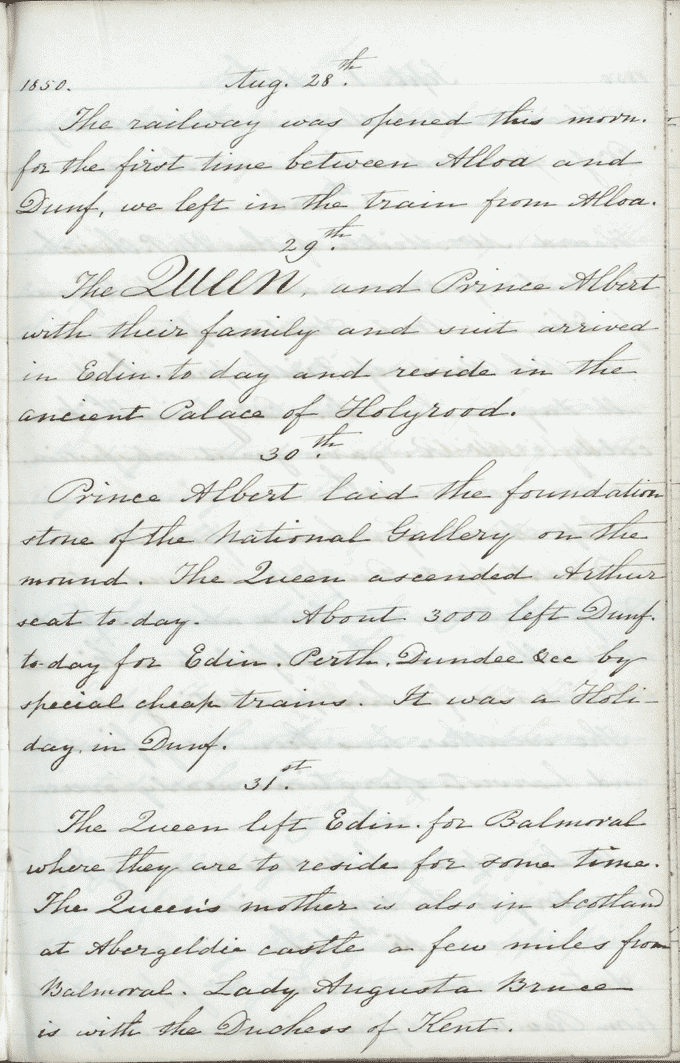 1850. Aug. 28th.
The railway was opened this morn.
for the first time between Alloa and
Dunf, we left in the train from Alloa.
29th.
The QUEEN, and Prince Albert
with their family and suit arrived
in Edin. to day and reside in the
ancient Palace of Holyrood.
30th.
Prince Albert laid the foundation
stone of the National Gallery on the
mound. The Queen ascended Arthur
seat to-day. About 3000 left Dunf.
to-day for Edin. Perth. Dundee &cc by
special cheap trains. It was a Holi-
day in Dunf.
31st.
The Queen left Edin. for Balmoral
where they are to reside for some time.
The Queen's mother is also in Scotland
at Abergeldie castle a few miles from
Balmoral. Lady Augusta Bruce
is with the Duchess of Kent.